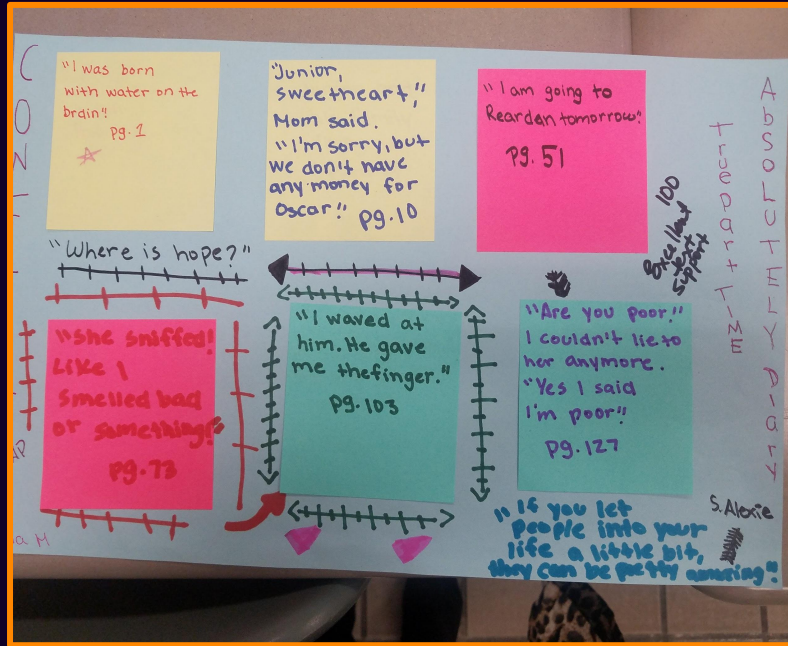 "I was born
with water on the
brain".
pg. 1
"Junior,
sweetheart",
Mom said.
"I'm sorry, but
we don't have
any money for
Oscar".
pg.10
"I am going to
Reardan tomorrow".
pg. 51
100
Excellent
text
support
True part TIME
AbSOLUTELY DiarY
CONT
"Where is hope?"
"She sniffed!
Like I
smelled bad
or something".
pg.73
"I waved at
him. He gave
me thefinger."
pg.103
"Are you poor".
I couldn't lie to
her anymore.
"Yes I said
I'm poor".
pg.127
"If you let
people into your
life a little bit,
they can be pretty amazing".
S. Alexie
a M